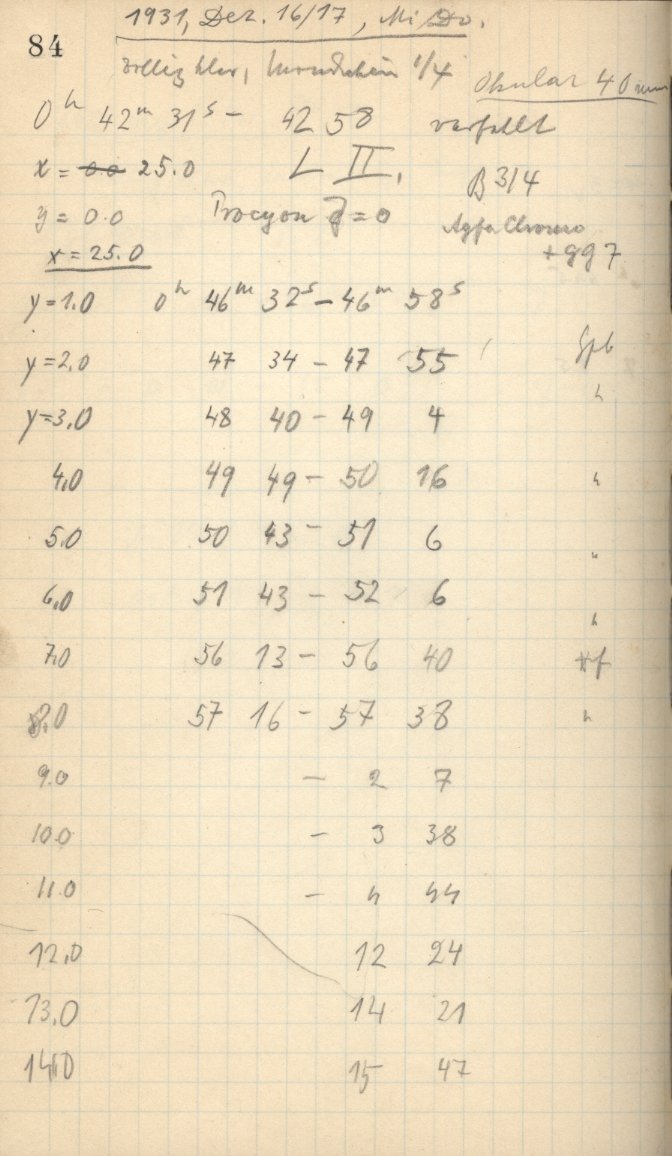 1931, Dez. 16/17, Mi/Do.
84
völlig klar, Mondschein 1/4
Okular 40mm
0h 42m 31s - 42 58 verfehlt
x = 0.0 25.0 L II, B 3/4
y = 0.0 Procyon = 0 Agfa Chromo
x = 25.0 + gg 7
y = 1.0 0h 46m 32s - 46m 58s
y = 2.0 47 34 - 47 55
y = 3.0 48 40 - 49 4 "
4,0 49 49 - 50 16 "
5.0 50 43 - 51 6 "
6,0 51 43 - 52 6 "
7,0 56 13 - 56 40
8.0 57 16 - 57 38 "
9.0 - 2 7
10.0 - 3 38
11.0 - 4 44
12,0 12 24
13,0 14 21
14,0 15 47